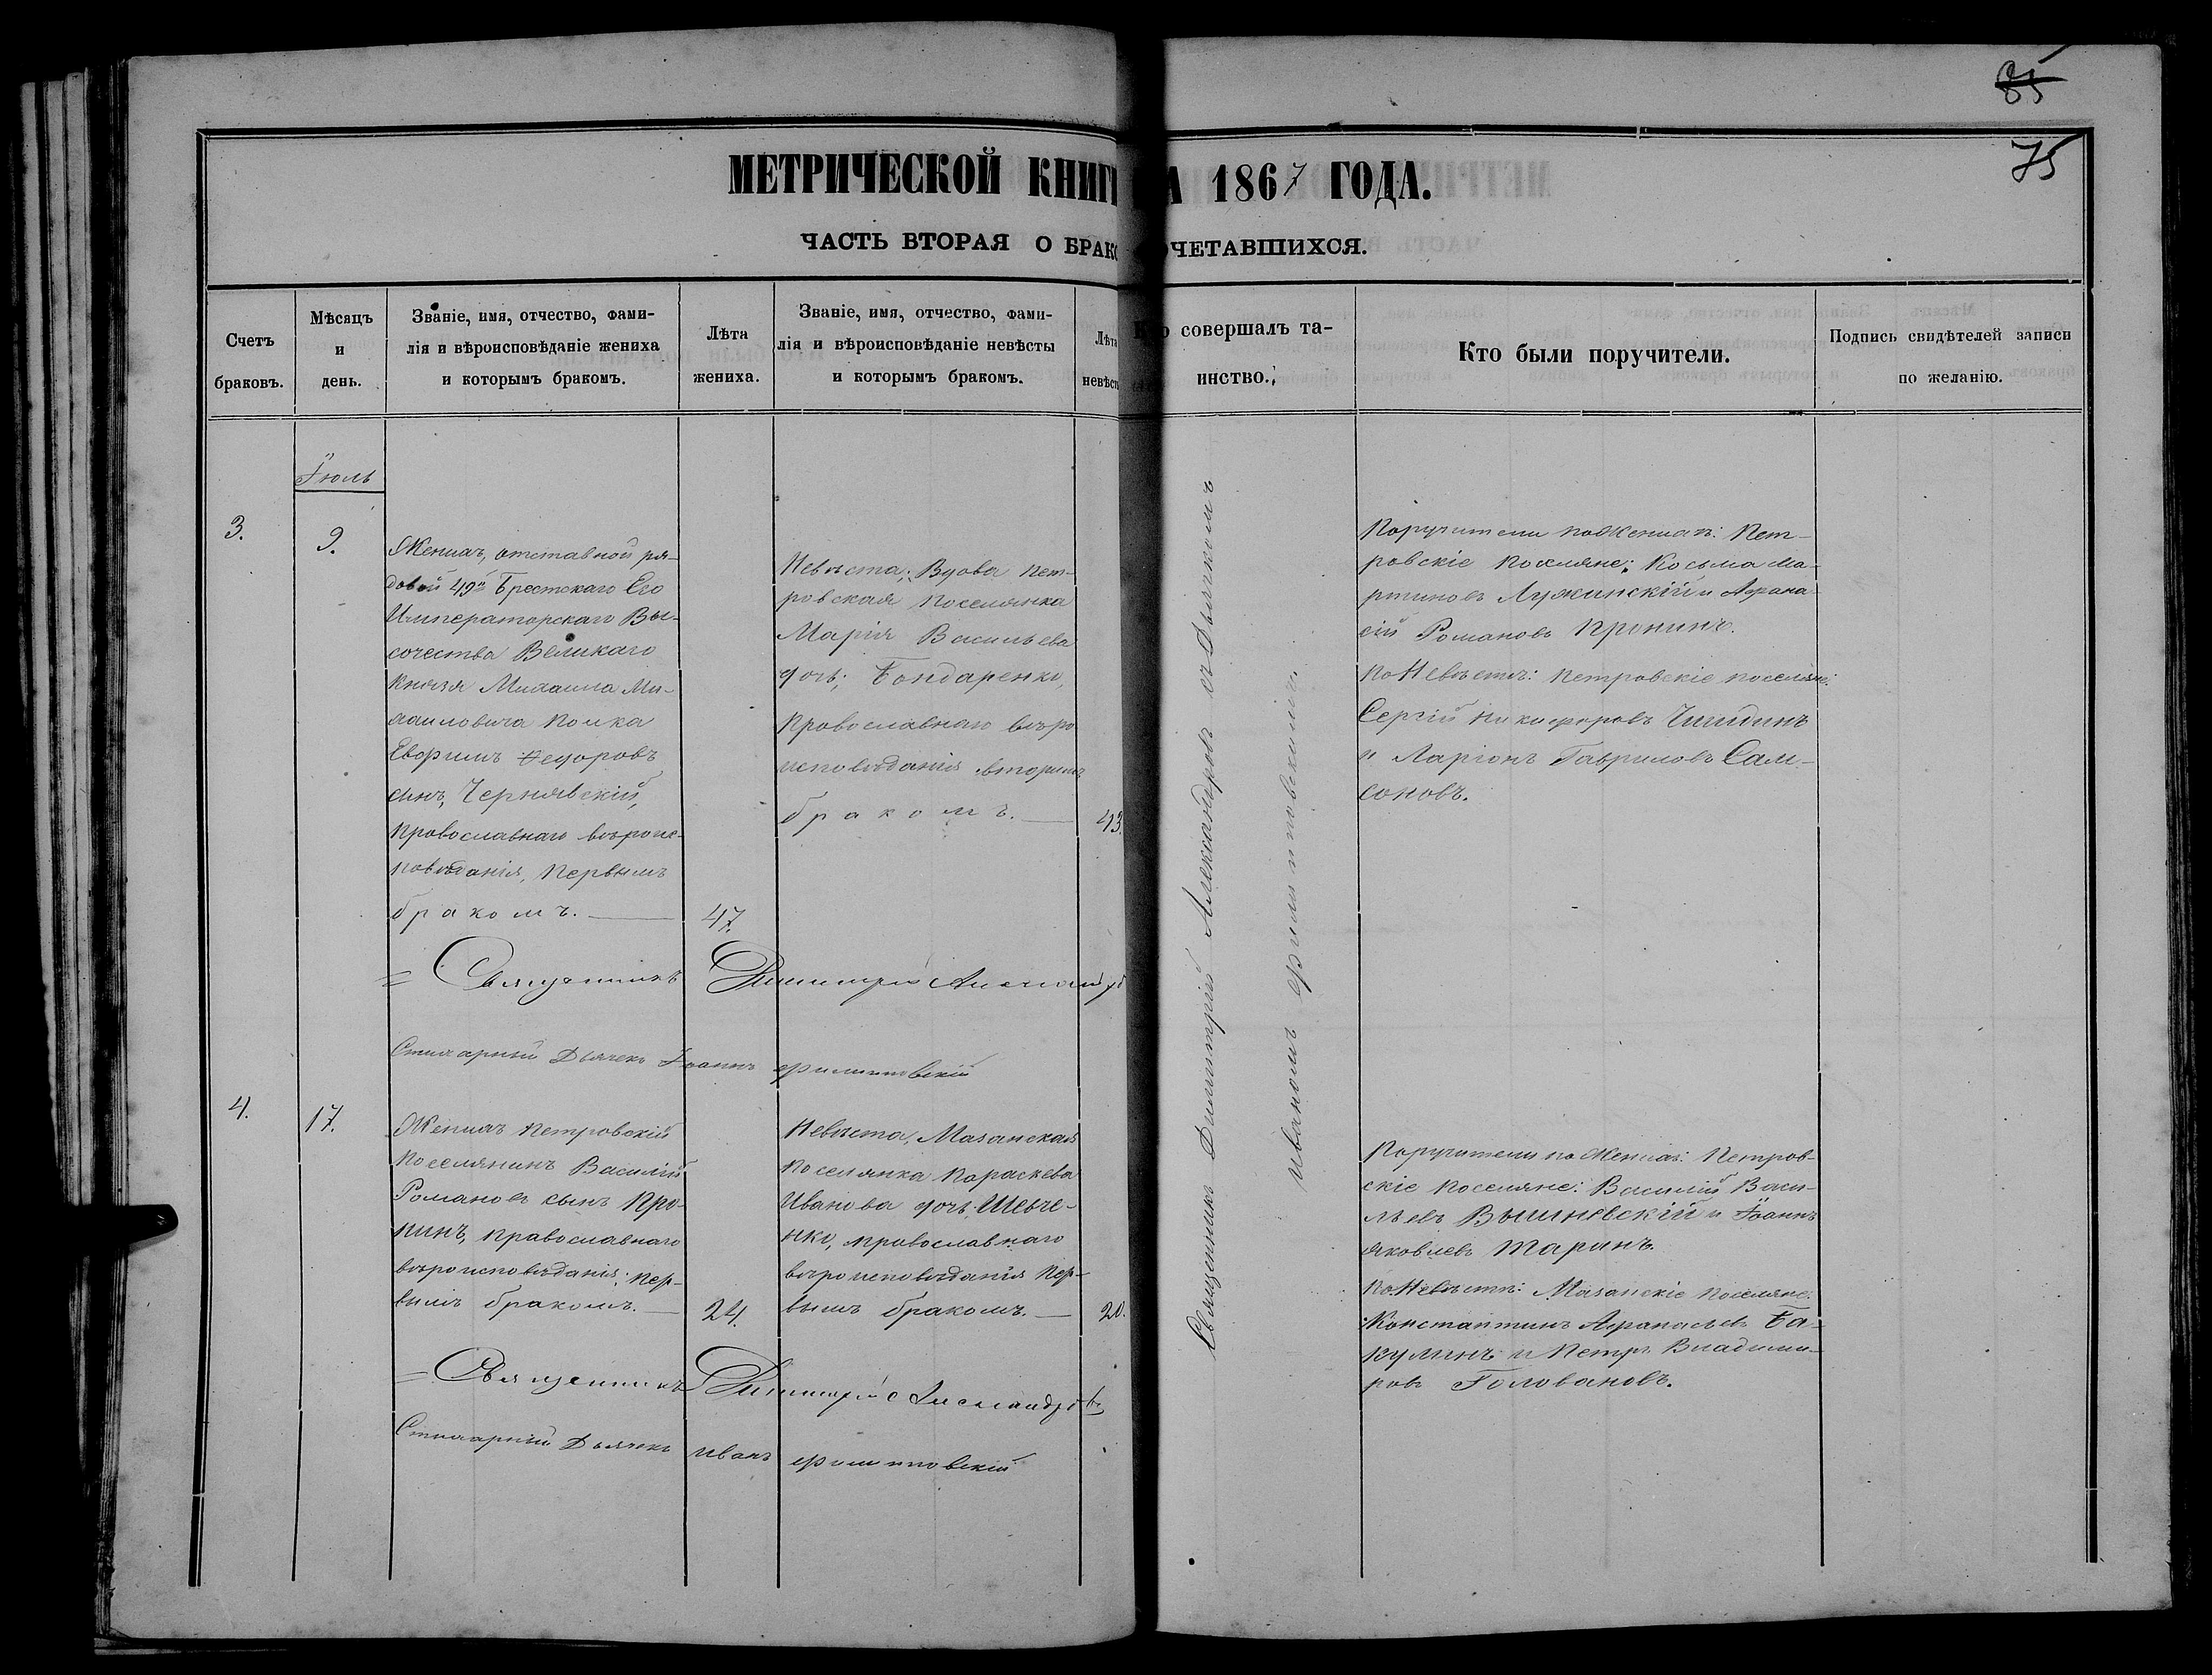 85
75
МЕТРИЧЕСКОЙ КНИГ А 1867 ГОДА.
ЧАСТЬ ВТОРАЯ О БРАКО ОЧЕТАВШИХСЯ.
Счетъ
браковъ.
Мѣсяцъ
и
день.
Званіе, имя, отчество, фами-
лія и вѣроисповѣданіе жениха
и которымъ бракомъ.
Лѣта
жениха.
Званіе, имя, отчество, фами-
лія и вѣроисповѣданіе невѣсты
и которымъ бракомъ.
Лѣта
невѣст
о совершалъ та-
инство.
Кто были поручители.
Подпись свидѣтелей записи
по желанію.
Іюль
3.
9.
Женихъ, отставной ря-
довой 49й Брестскаго Его
Императорскаго Вы-
сочества Великаго
Князя Михаила Ми-
хаиловича полка
Евфимъ Ѳедоровъ
сынъ, Чернявскій,
православнаго вѣроис-
повѣданія, первымъ
бракомъ.
47.
Невѣста; Вдова Пет-
ровская поселянка
Марія Васильева
дочь; Бондаренко,
православнаго вѣро
исповѣданія вторымъ
бракомъ.
43.
Священникъ Димитрій Александровъ съ Дьячкомъ
Иваномъ Филипповскимъ.
Поручители по Женихѣ: Пет-
ровскіе поселяне: Косьма Ма-
ртиновъ Лужинскій и Афана-
сій Романовъ Пронинъ.
По Невѣстѣ: Петровскіе поселяне:
Сергій Никифоровъ
и Ларіонъ Гавриловъ Сам-
соновъ.
Священникъ Димитрій Александ
Стихарный Дьячекъ Іоаннъ Филипповскій
4.
17.
Женихъ Петровскій
поселянинъ Василій
Романовъ сынъ Про-
нинъ, православнаго
вѣроисповѣданія; пер-
вымъ бракомъ.
24.
Невѣста, Мазанская
поселянка Параскева
Иванова дочь Шевче-
нко, православнаго
вѣроисповѣданія пер-
вымъ бракомъ.
20.
Поручители по Женихѣ: Петров-
скіе поселяне: Василій Васи-
льевъ Вышневскій и Іоаннъ
Яковлевъ Таранъ.
По Невѣстѣ: Мазанскіе поселяне:
Константинъ Афанасьевъ Ба-
кулинъ и Петръ Владими-
ровъ Головановъ.
Священникъ Димитрій Александровъ
Стихарный Дьячекъ Иванъ Филипповскій